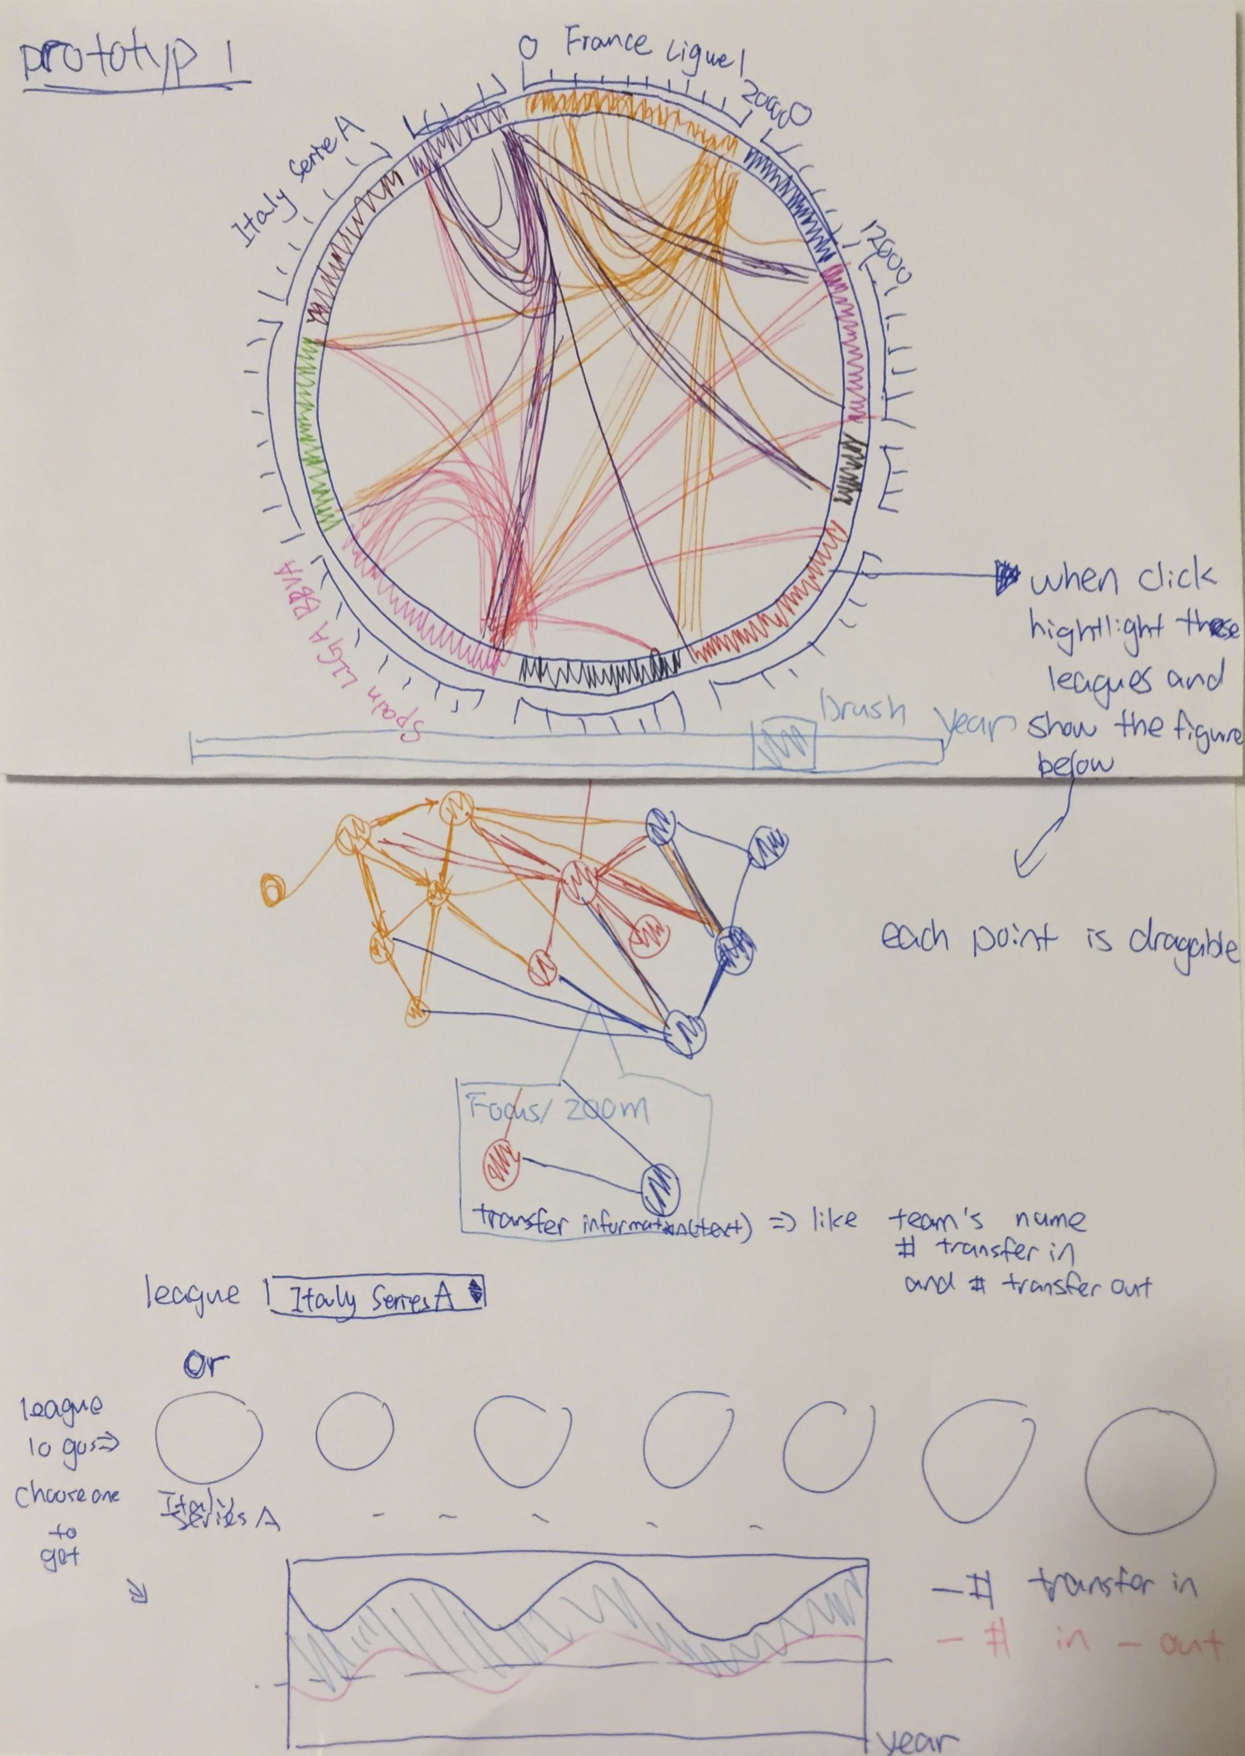 prototyp 1
0 France Ligue 1
20000
Italy Serie A
12000
Spain LIGA BBVA
when click
hightlight these
leagues and
show the figure
below
brush
year
each point is dragable
Focus/ zoom
transfer information(text) => like team's name
# transfer in
and # transfer out
league Italy Series A
or
league
logos=>
choose one
to
get
Italy
Series A
- # transfer in
- # in - out
year